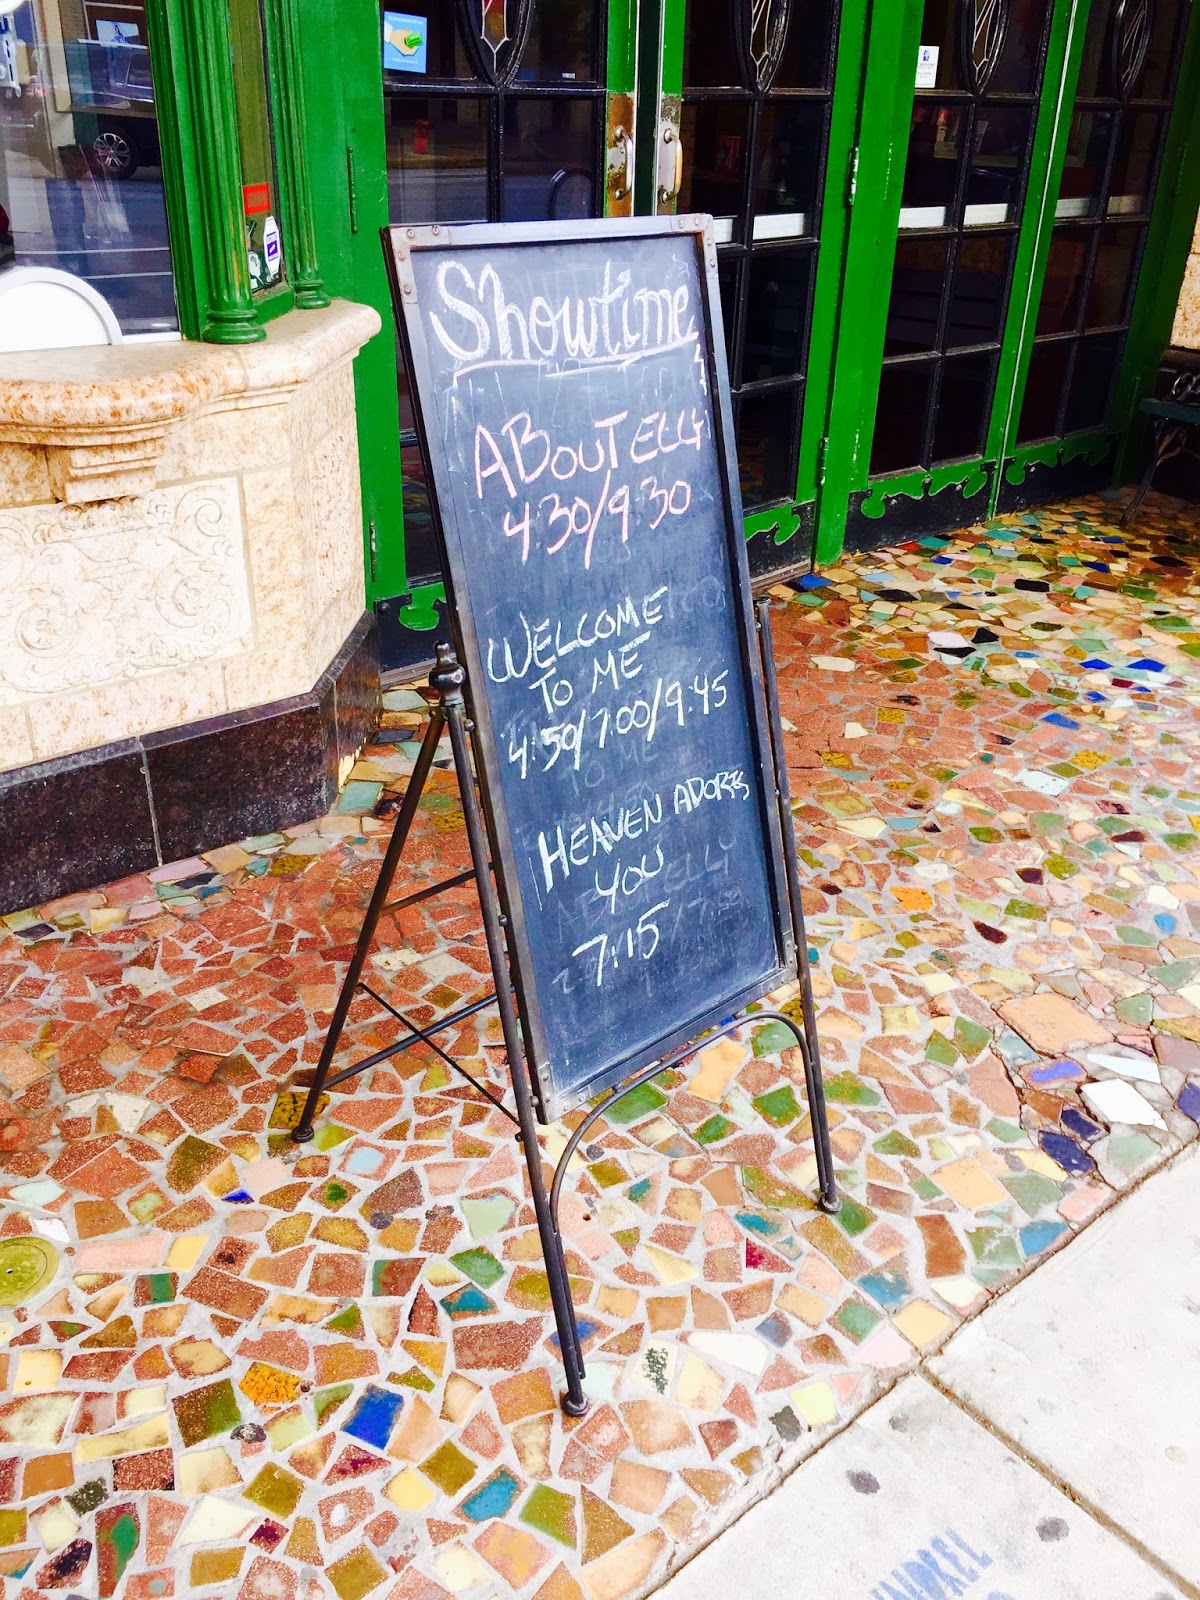 Showtime
ABOUT ELLY
4:30/9:30
WELCOME
TO ME
4:50/7:00/9:45
HEAVEN ADORES
YOU
7:15